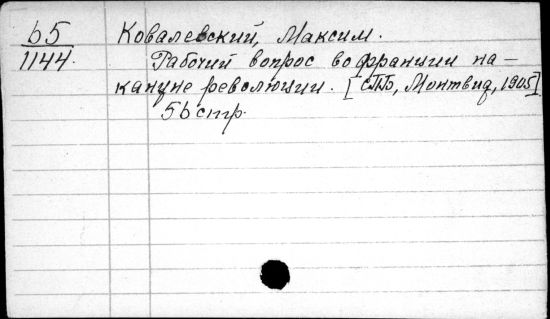 65
1144.
Ковалевский, Максим.
Рабочий вопрос во франции на-
кануне революции. [СПБ, Монтвид, 1905]
56 стр.